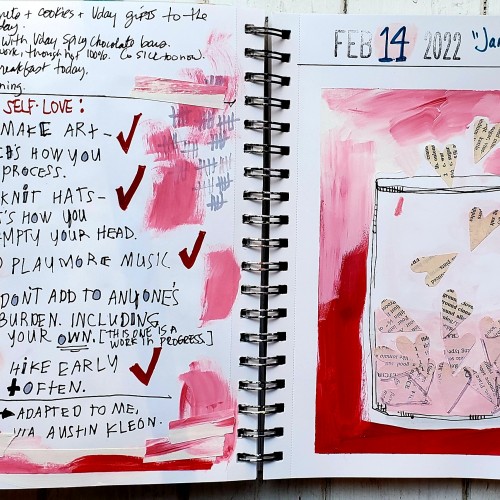 + cookies + Vday gifts to the
day.
with Vday spicy chocolate bars.
work, though not 100%. So sick too now.
breakfast today.
SELF-LOVE:
MAKE ART-
IT'S HOW YOU
PROCESS.
KNIT HATS-
IT'S HOW YOU
EMPTY YOUR HEAD.
PLAY MORE MUSIC.
DON'T ADD TO ANYONE'S
BURDEN. INCLUDING
YOUR OWN. [THIS ONE IS A
WORK IN PROGRESS]
HIKE EARLY
+ OFTEN.
ADAPTED TO ME,
VIA AUSTIN KLEON.
FEB 14 2022 "Ja